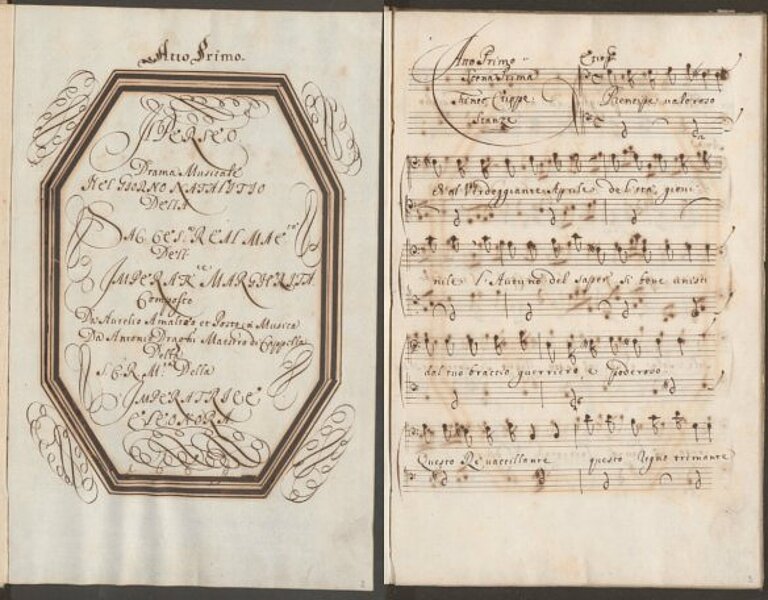 Atto Primo.
Il PERSEO
Drama Musicale
Nel GIORNO NATALITIO
Della
SAC. CES.ª REAL MAE.
Dell'
IMPERAR.ce MARGHERITA
Composto
Da Aurelio Amalteo et Posto in Musica
Da Antonio Draghi Maestro di Cappella
Della
S.C.R. M.ta Della
IMPERATRICE
ELEONORA
Atto Primo
Scena Prima
Fineo, Ceffeo:
Stanze
Prencipe valoroso
Ch'al Verdeggiante Aprile de l'età gioui
nile l'Autuno del saper si bene unisti
dal tuo braccio guerriero, e poderoso
Questo Re vaccillante questo Regno tremante